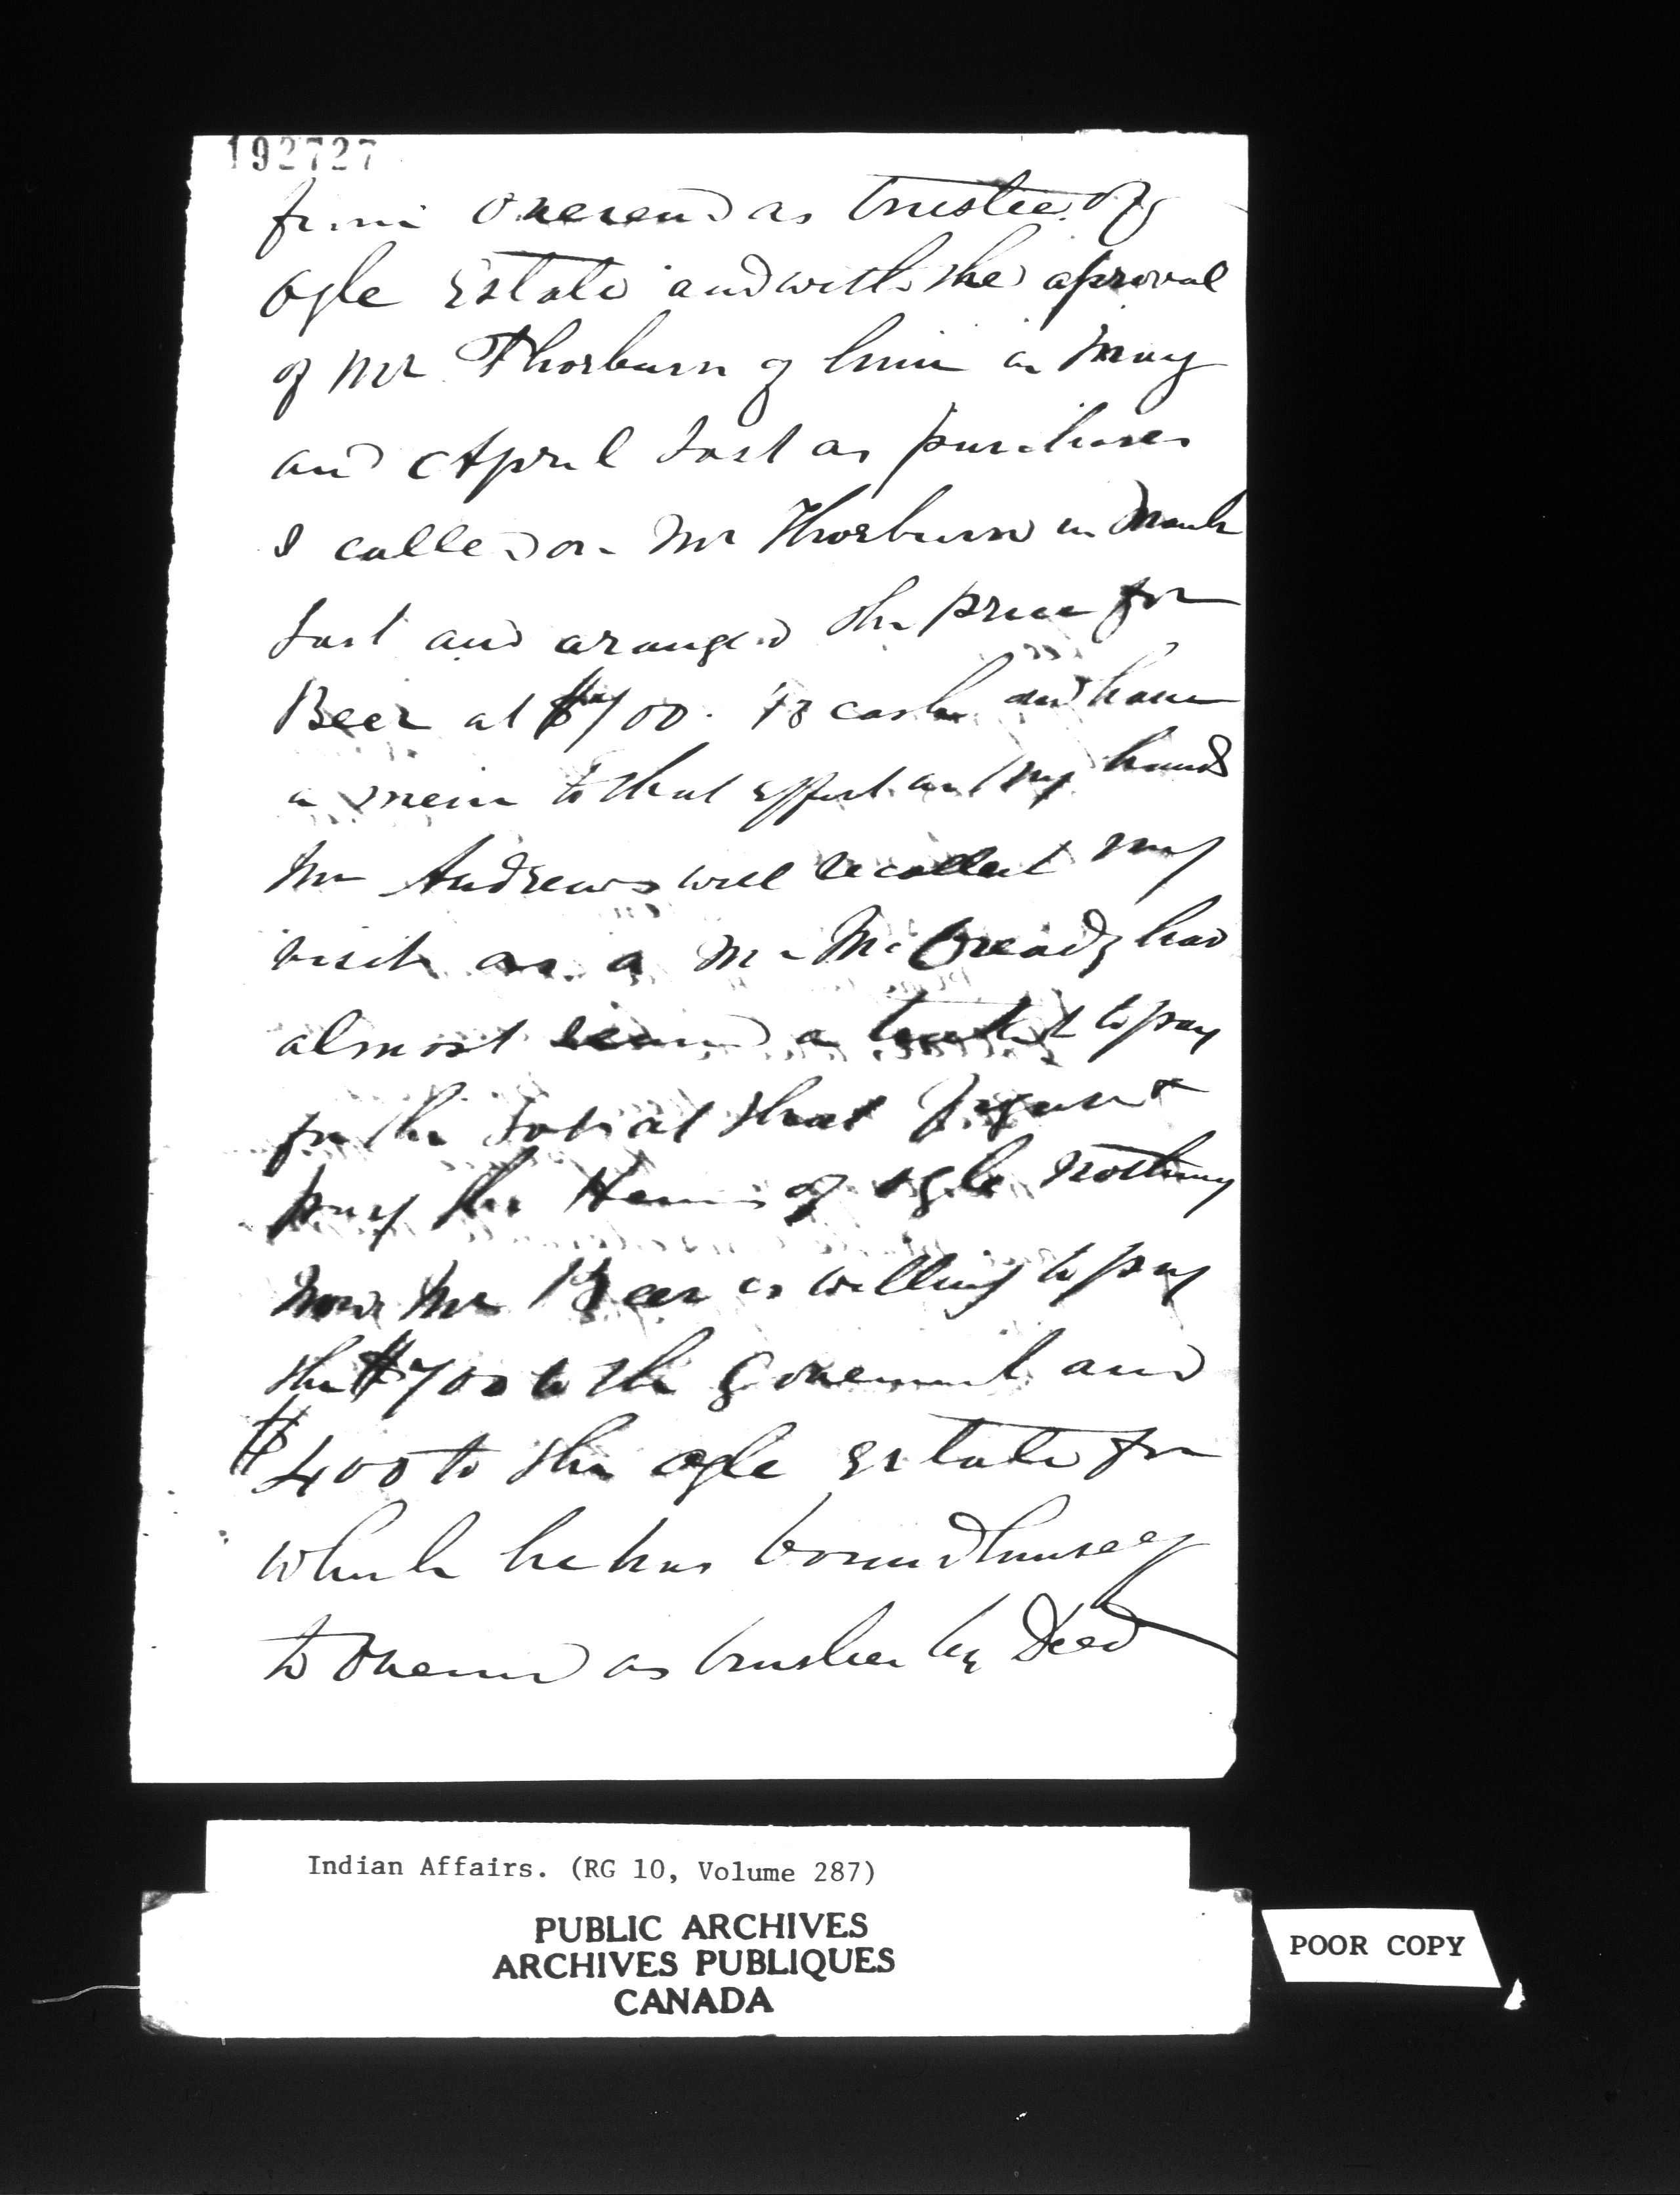 192727
from Overend as trustee of
Ogle Estate and with the aproval
of Mr Thorburn of him in May
and April last as purchaser
I called on Mr Thorburn in March
last and aranged the price for
Beer at $700. 1/3 cash and have
a mem to that effect in my hands
Mr Andrews will recollect my
visit as a Mr McCready had
almost a to pay
for the Lot at that figure &
pay the Heirs of Ogle nothing
now Mr Beer is willing to pay
the $700 to the Goverment and
$400 to the Ogle Estate for
which he has bound himself
to Overend as trustee by Deed
Indian Affairs. (RG 10, Volume 287)
PUBLIC ARCHIVES
ARCHIVES PUBLIQUES
CANADA
POOR COPY